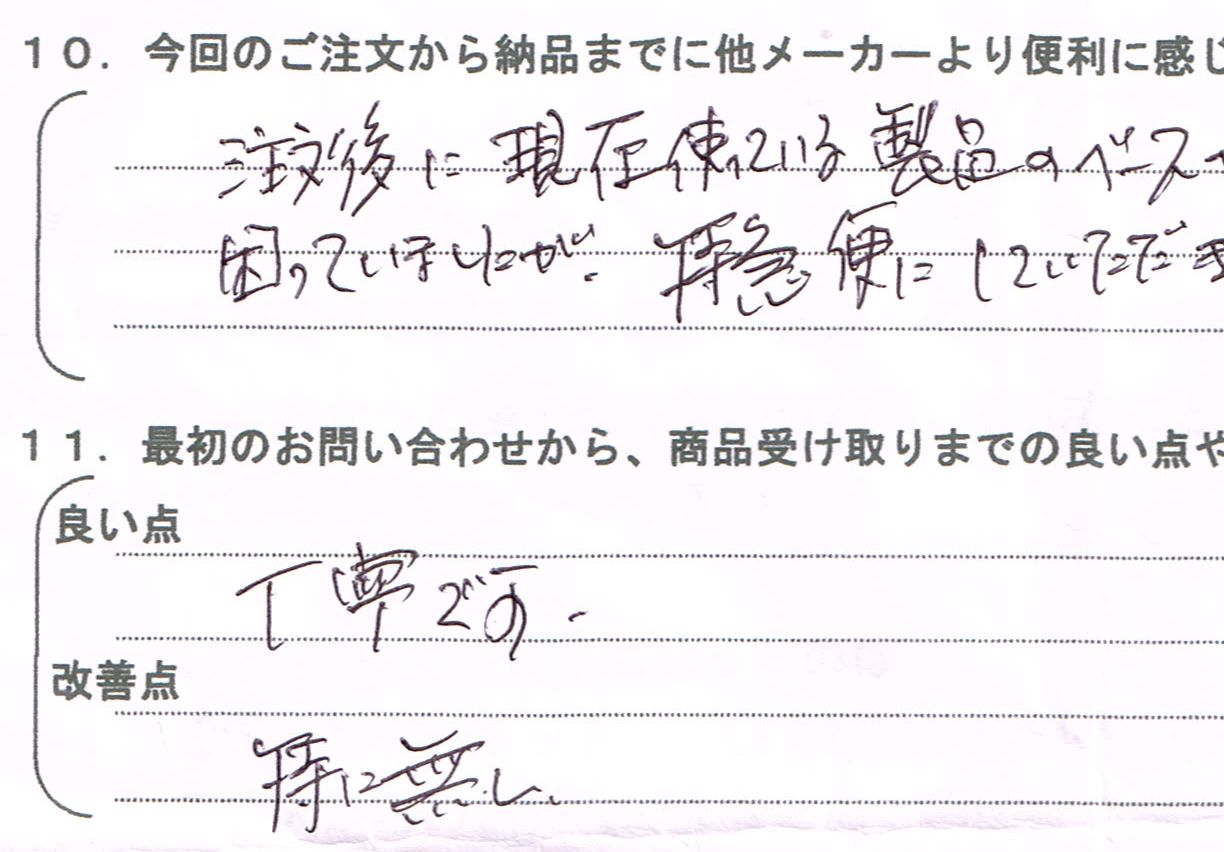 10. 今回のご注文から納品までに他メーカーより便利に感じ
注文後に現在使っている製品のベース
困っていましたが、特急便にしていただき
11. 最初のお問い合わせから、商品受け取りまでの良い点や
良い点
丁寧です。
改善点
特に無し、